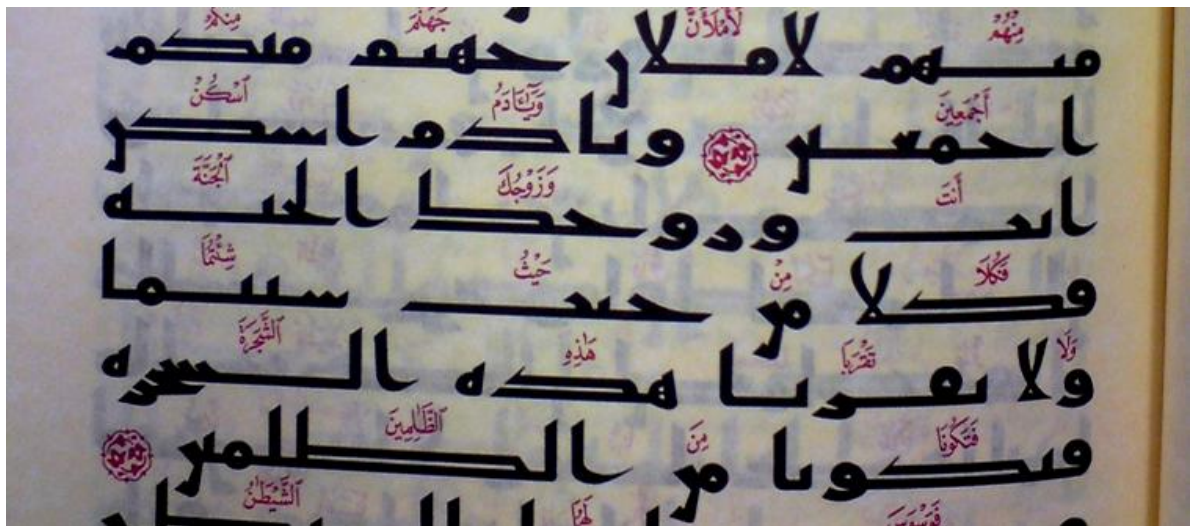 مِنْهُمْ لَأَمْلَأَنَّ جَهَنَّمَ مِنكُمْ
منهم لاملان جهنم منكم
أَجْمَعِينَ وَيَـٰٓـَٔادَمُ ٱسْكُنْ
اجمعين ويادم اسكن
أَنتَ وَزَوْجُكَ ٱلْجَنَّةَ
انت وزوجك الجنه
فَكُلَا مِنْ حَيْثُ شِئْتُمَا
فكلا من حيث شيتما
وَلَا تَقْرَبَا هَـٰذِهِ ٱلشَّجَرَةَ
ولا تقربا هذه الشجره
فَتَكُونَا مِنَ ٱلظَّـٰلِمِينَ
فتكونا من الظلمين
فَوَسْوَسَ لَهُمَا ٱلشَّيْطَـٰنُ